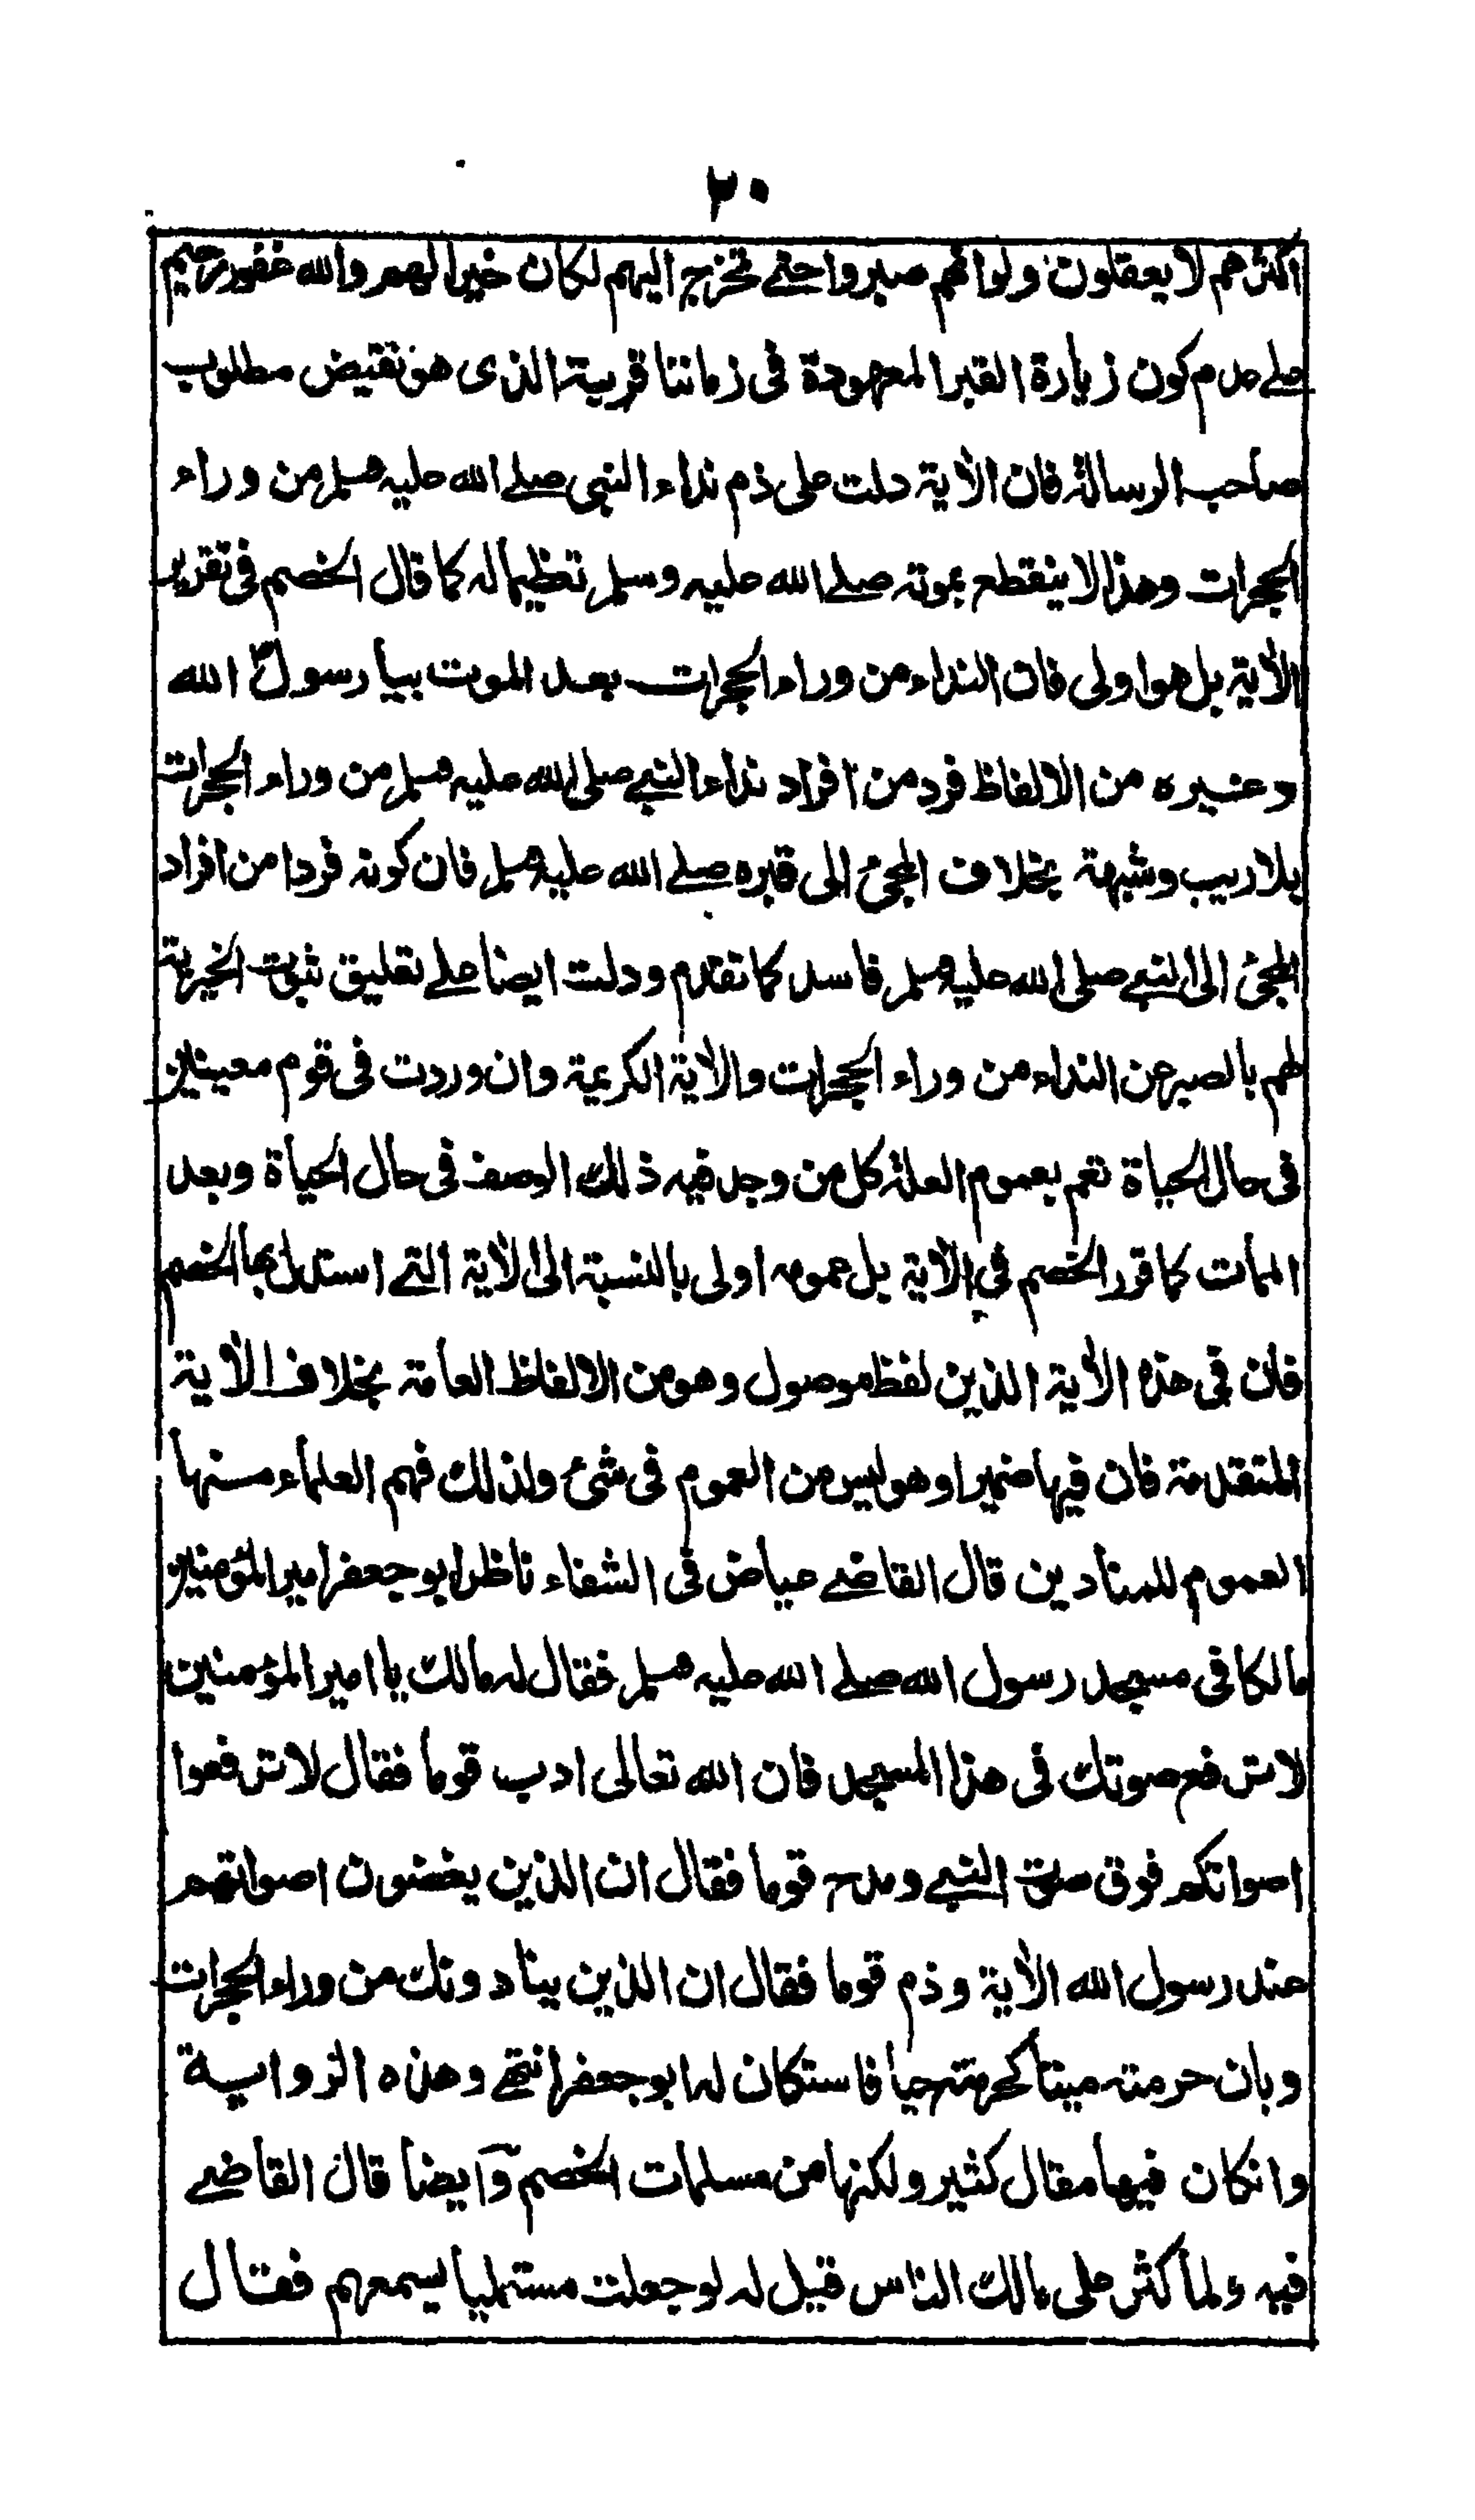 ٢٠
اكثرهم لا يعقلون ولوا انهم صبروا حتى تخرج اليهم لكان خيرا لهم والله غفور رحيم
على عدم كون زيارة القبر المعهودة فى زماننا قربة الذى هو نقيض مطلوب
صاحب الرسالة فان الآية دلت على ذم نداء النبى صلى الله عليه وسلم من وراء
الحجرات وهذا لا ينقطع بموته صلى الله عليه وسلم تعظيما له كما قال الخصم فى تقرير
الآية بل هو اولى فان النداء من وراء الحجرات بعد الموت بيا رسول الله
وغيره من الالفاظ فرد من افراد نداء النبى صلى الله عليه وسلم من وراء الحجرات
بلا ريب وشبهة بخلاف المجئ الى قبره صلى الله عليه وسلم فان كونه فردا من افراد
المجئ الى النبى صلى الله عليه وسلم فاسد كما تقدم ودلت ايضا على تعليق ثبوت الخيرية
لهم بالصبر عن النداء من وراء الحجرات والآية الكريمة وان وردت فى قوم معينين
فى حال الحياة تعم بعموم العلة كل من وجد فيه ذلك الوصف فى حال الحياة وبعد
الممات كما قرر الخصم فى الآية بل عمومه اولى بالنسبة الى الآية التى استدل بها الخصم
فان فى هذه الآية الذين لفظ موصول وهو من الالفاظ العامة بخلاف الآية
المتقدمة فان فيها ضميرا وهو ليس من العموم فى شئ ولذلك فهم العلماء منها
العموم للمنادين قال القاضى عياض فى الشفاء ناظر ابو جعفر امير المؤمنين
مالكا فى مسجد رسول الله صلى الله عليه وسلم فقال له مالك يا امير المؤمنين
لا ترفع صوتك فى هذا المسجد فان الله تعالى ادب قوما فقال لا ترفعوا
اصواتكم فوق صوت النبى ومدح قوما فقال ان الذين يغضون اصواتهم
عند رسول الله الآية وذم قوما فقال ان الذين ينادونك من وراء الحجرات
وبان حرمته ميتا كحرمته حيا فاستكان له ابو جعفر انتهى وهذه الرواية
وانكان فيها مقال كثير ولكنها من مسلمات الخصم وآيضا قال القاضى
فيه ولما كثر على مالك الناس قيل له لو جعلت مستمليا يسمعهم فقال